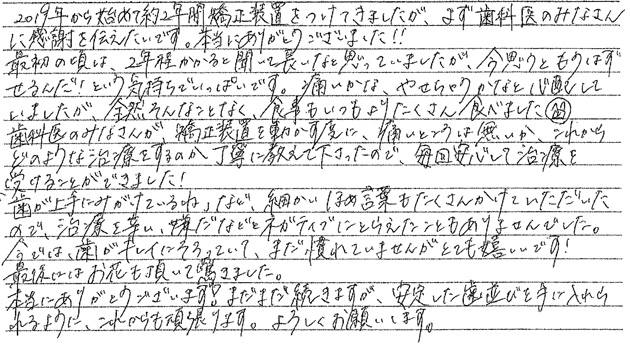 2019年から始めて約2年間矯正装置をつけてきましたが、まず歯科医のみなさん
に感謝を伝えたいです。本当にありがとうございました!!
最初の頃は、2年程かかると聞いて長いなと思っていましたが、今思うともうはず
せるんだ!という気持ちでいっぱいです。痛いかな、やせちゃうかなと心配して
いましたが、全然そんなことなく、食事もいつもよりたくさん食べました
歯科医のみなさんが、矯正装置を動かす度に、痛いところは無いか、これから
どのような治療をするのか丁寧に教えて下さったので、毎回安心して治療を
受けることができました!
「歯が上手にみがけているね」など、細かいほめ言葉もたくさんかけていただいた
ので、治療を辛い、嫌だなどとネガティブにとらえたこともありませんでした。
今では、歯がキレイにそろっていて、まだ慣れていませんがとても嬉しいです!
最後にはお花も頂いて驚きました。
本当にありがとうございます!まだまだ続きますが、安定した歯並びを手に入れら
れるように、これからも頑張ります。よろしくお願いします。